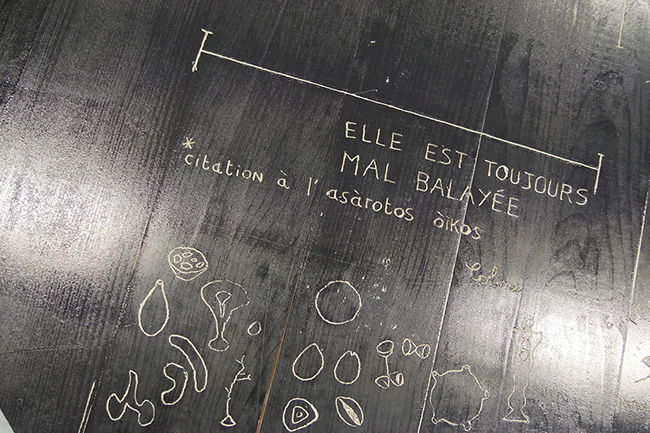 ELLE EST TOUJOURS
MAL BALAYÉE
*
citation à l'asàrotos òikos